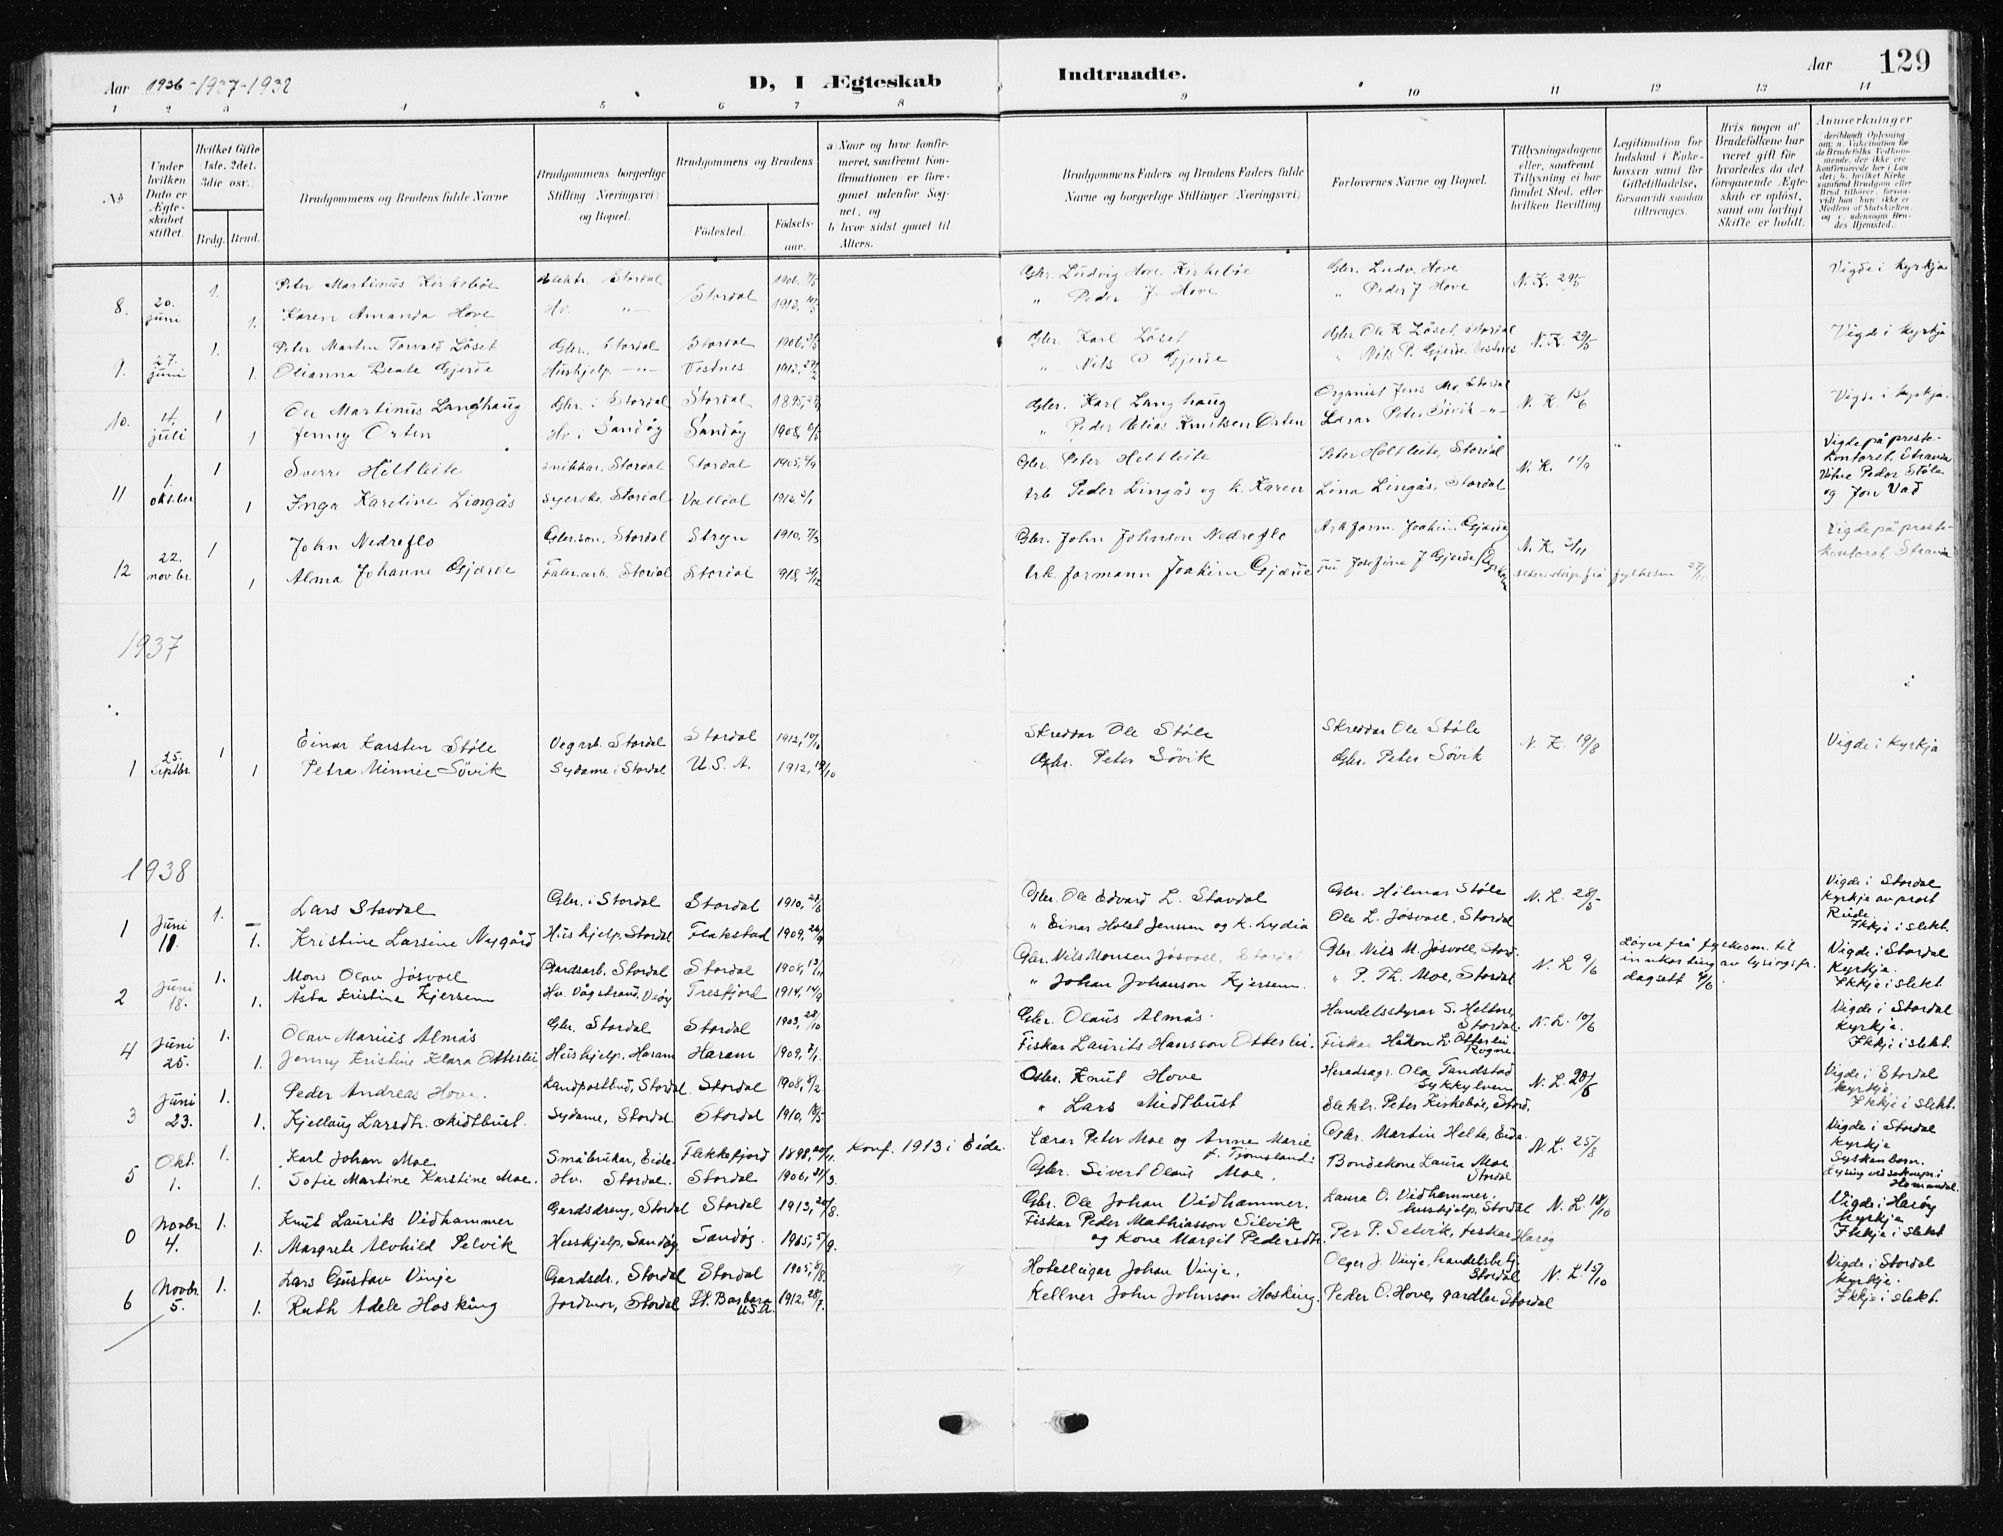 Aar 1936-1937-1938
D, I Ægteskab Indtraadte.
Aar 129
1 2 3 4 5 6 7 8 9 10 11 12 13 14
No
Under hvilken Dato er Ægteskabet stiftet.
Hvilket Gifte 1ste, 2det, 3die osv.
Brdg. Brud.
Brudgommens og Brudens fulde Navne
Brudgommens borgerlige Stilling (Næringsvei) og Bopæl.
Brudgommens og Brudens
Fødested. Fødselsaar.
a Naar og hvor konfirmeret, saafremt Konfirmationen er foregaaet udenfor Sognet, og
b hvor sidst gaaet til Alters.
Brudgommens Faders og Brudens Faders fulde Navne og borgerlige Stillinger (Næringsvei).
Forlovernes Navne og Bopæl.
Tillysningsdagene eller, saafremt Tillysning ei har fundet Sted, efter hvilken Bevilling.
Legitimation for Indskud i Enkekassen samt for Giftetilladelse, forsaavidt saadan tiltrænges.
Hvis nogen af Brudefolkene har været gift før hvorledes da det foregaaende Ægteskab er opløst, samt om lovligt Skifte er holdt.
Anmerkninger
8. 20. juni 1. Peter Martinus Kirkebøe Elektr. Stordal 1906, Gbr. Ludvig Hove Kirkebøe Gbr. Ludv. Hove N. K. 29/5 Vigde i Kyrkja
1. Karen Amanda Hove Hv. —"— Stordal 1912, " Peder J. Hove " Peder J Hove
9. 27. juni 1. Peter Martin Torvald Løset Gbr. Stordal Stordal 1906, Gbr. Karl Løset Gbr Ole K Løset, Stordal N. K. 29/5 Vigde i kyrkja
1. Olianna Beate Gjerde Hushjelp —"— Vestnes 1912, " Nils P Gjerde " Nils P. Gjerde Vestnes
10. 11. juli 1 Ole Martinus Langhaug Gbr. i Stordal Stordal 1895, Gbr. Karl Langhaug Organist Jens Mo, Stordal N. K. 13/6 Vigde i kyrkja.
1 Jenny Orten Hv. i Sandøy Sandøy 1908, " Peder Elias Knutsen Orten Lærar Peter Søvik —"—
11 1. oktober 1 Sverre Holtleite snikkar, Stordal Stordal 1905, Gbr Peter Holtleite Peter Holtleite, Stordal N. K. 19/9 Vigde på prestekontoret, Stranda Vitne Peder Støle og Jon Vad
1 Inga Karoline Lingås Syerske, Stordal Valldal 1912 Arb Peder Lingås og k. Karen Lina Lingås, Stordal
12 22. novbr. 1 John Nedreflo Gbr.son, Stordal Stryn 1910, Gbr. John Johnson Nedreflo Arb.form. Joakim Gjærde N. K. 2/11 Vigde på prestekontoret Stranda
1 Alma Johanne Gjærde Fabr.arb. Stordal Stordal 1918, Arb. formann Joakim Gjærde Fru Josefine J Gjerde
1937
1 25. Septbr 1 Einar Karsten Støle Vegarb. Stordal Stordal 1912, Skreddar Ole Støle Skreddar Ole Støle N. K. 19/8 Vigde i kyrkja
1 Petra Minnie Søvik Sydame i Stordal U.S.A. 1912, 19/10 Gbr. Peter Søvik Gbr. Peter Søvik
1938
1 Juni 11. 1. Lars Stavdal Gbr. i Stordal Stordal 1910, Gbr. Ole Edvard L. Stavdal Gbr. Hilmar Støle N. L. 28/5 Vigde i Stordal kyrkje av prost Riide. Ikkje i slekt.
1. Kristine Larsine Nygård Hushjelp, Stordal Flakstad 1909, " Einar Holst Jensen og k. Lydia Ole L. Jøsvoll, Stordal
2 Juni 18. 1. Mons Olav Jøsvoll Gardsarb. Stordal Stordal 1908, 13/11 Gbr. Nils Monsen Jøsvoll, Stordal Gbr. Nils M. Jøsvoll, Stord. N. L. 9/6 Løyve frå fylkesm. til innkorting av lysingsfr. dagsett Vigde i Stordal Kyrkje. Ikkje i slekt
1. Åsta Kristine Kjersem Hv. Vågstrand, Veøy Tresfjord 1914, 14/9 " Johan Johanson Kjersem. " P. Th. Moe, Stordal
4 Juni 25. 1. Olav Marius Almås Gbr. Stordal Stordal 1903, 28/10 Gbr. Olaus Almås. Handelsstyrar S. Heltne, Stordal. N. L. 10/6 Vigde i Stordal kyrkje. Ikkje i slekt.
1. Jenny Kristine Klara Otterlei Hushjelp, Haram Haram 1909, 7/1. Fiskar Laurits Hansson Otterlei. Fiskar Håkon L. Otterlei Rogne.
3 Juni 23. 1. Peder Andreas Hove. Landpostbud, Stordal. Stordal 1908, 8/2 Gbr. Knut Hove Heradsagr. Ola Tandstad Sykkylven N. L. 28/5 Vigde i Stordal kyrkje Ikkje i slekt.
1. Kjellaug Larsdtr. Midtbust. Sydame, Stordal. Stordal 1910, " Lars Midtbust Elektr. Peter Kirkebøe, Stord.
5 Okt. 1. 1. Karl Johan Moe Småbrukar, Eide. Flekkefjord 1898, Konf. 1913 i Eide. Lærar Peter Moe og Anne Marie f. Tjomsland. Gbr. Martin Helte, Eide N. L. 25/8 Vigde i Stordal kyrkje Syskenborn.
1. Sofie Martine Karstine Moe. Hv. Stordal. Stordal 1906, 31/3. Gbr. Sivert Olaus Moe. Bondekone Laura Moe Stordal
0 Novbr 4. 1. Knut Laurits Vidhammer Gardsdreng, Stordal Stordal 1913, Gbr. Ole Johan Vidhammer. Laura O. Vidhammer, hushjelp, Stordal N. L. 18/10 Vigde i Harøy kyrkje Ikkje i slekt
1. Margrete Alvhild Selvik Hushjelp, Sandøy Sandøy. 1915, 5/9. Fiskar Peder Mathiasson Silvik og Kone Margit Pedersdtr. Per P. Selvik, fiskar Harøy
6 Novbr 5. 1. Lars Gustav Vinje Gardsdr., Stordal Stordal 1905, 8/8. Hotelleigar Johan Vinje. Olger J. Vinje, handelsbetj. Stordal N. L. 15/10 Vigde i Stordal kyrkje. Ikkje i slekt.
1. Ruth Adele Hosking Jordmor, Stordal St. Barbara U.S.A. 1912, 28/7. Kellner John Johnson Hosking. Peder O. Hove, gardbr. Stordal